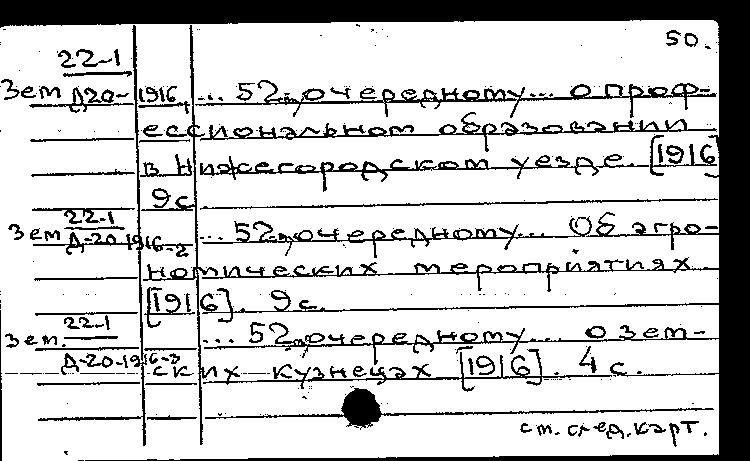 50.
22-1
Зем Д20-1916, ... 52му очередному... о проф-
ессиональном образовании
в Нижегородском уезде. [1916]
9с
22-1
Зем Д-20 1916-2 ... 52му очередному... Об агро-
номических мероприятиях
[1916]. 9с.
22-1
Зем. Д-20-1916-3 ... 52му очередному... о зем-
ских кузнецах [1916]. 4с.
см. след. карт.